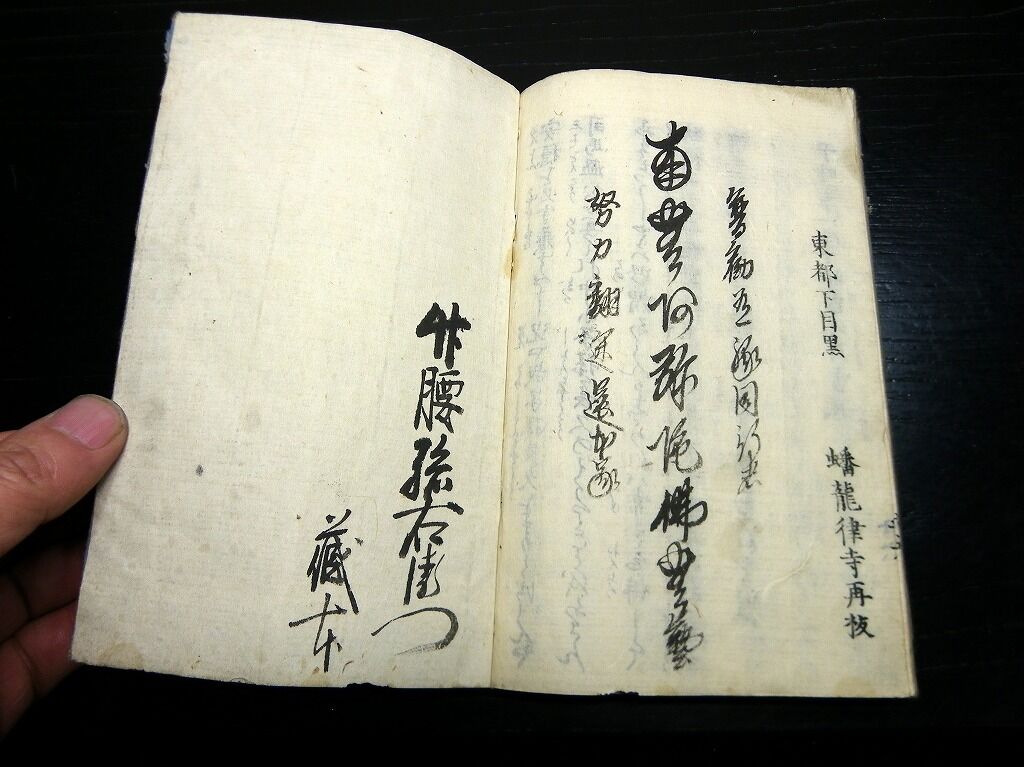 東都下目黒
蟠龍律寺再板
普勧有縁同行者
南無阿弥陀佛無
努力翻迷還本家
竹腰孫右衛門
蔵本